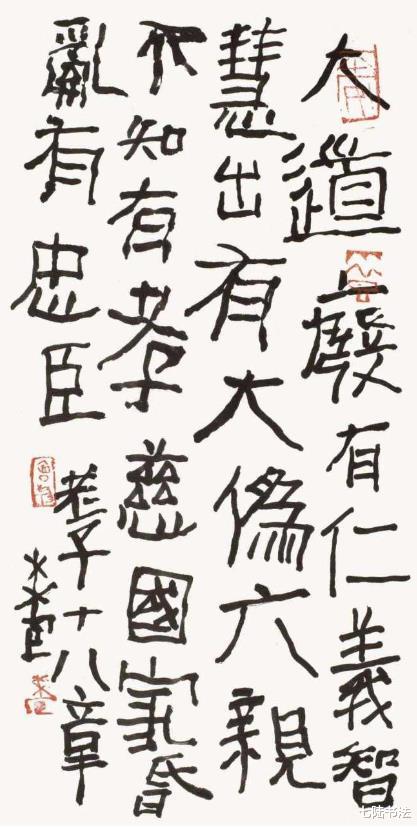 大道廢有仁義智
慧出有大偽六親
不知有孝慈國家昏
亂有忠臣
老子十八章
七陆书法